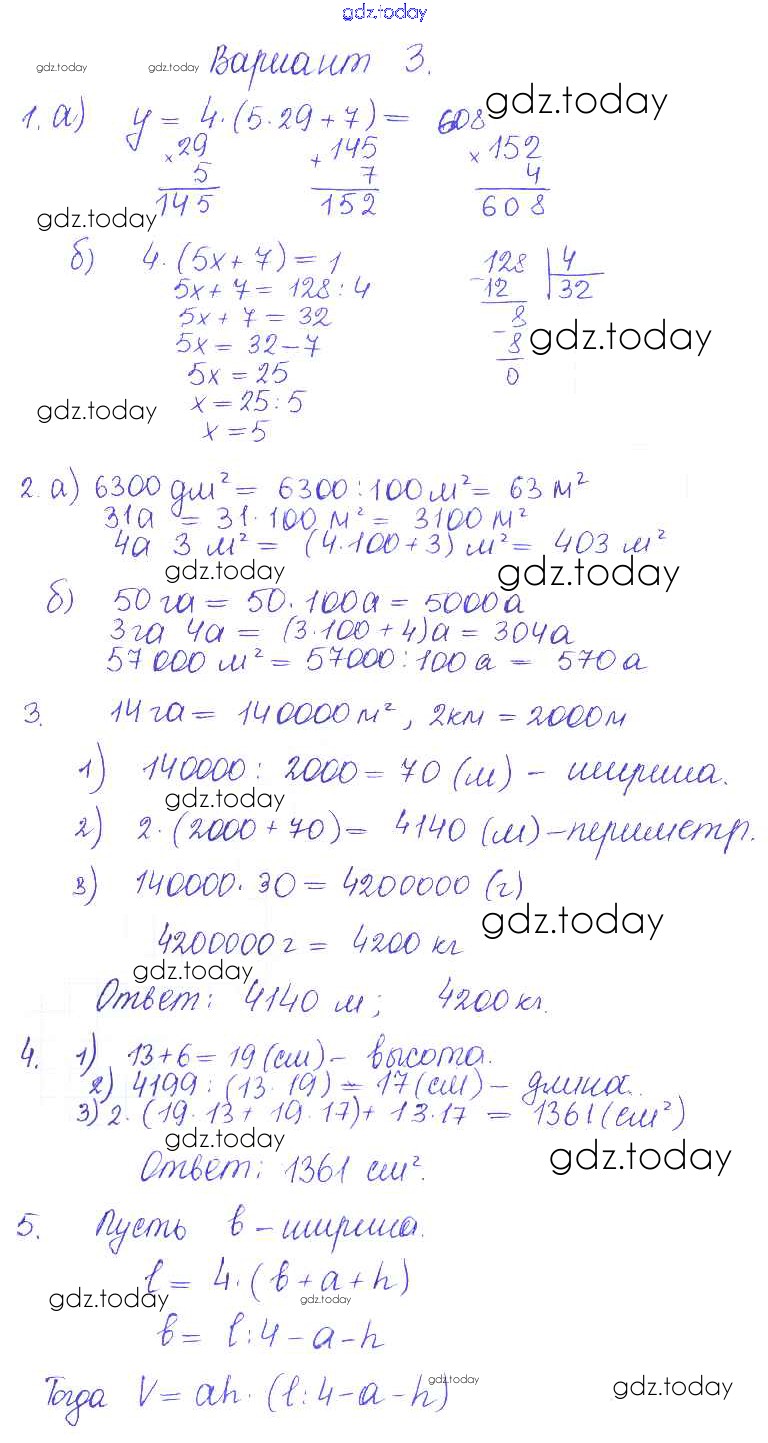 gdz.today
gdz.today gdz.today Вариант 3.
1. а) y = 4·(5·29+7)= 608 gdz.today
× 29 + 145 × 152
5 7 4
145 152 608
gdz.today
б) 4·(5x+7)=1 128 | 4
5x+7= 128:4 -12 32
5x+7=32 8
5x= 32-7 -8 gdz.today
5x=25 0
gdz.today x=25:5
x=5
2. а) 6300 дм²= 6300:100 м²= 63 м²
31а = 31·100 м²= 3100 м²
4а 3 м²= (4·100+3) м²= 403 м²
gdz.today gdz.today
б) 50 га= 50·100а= 5000а
3га 4а= (3·100+4)а= 304а
57 000 м²= 57000:100 а = 570 а
3. 14 га= 140000 м², 2км=2000м
1) 140000: 2000=70 (м) - ширина.
gdz.today
2) 2·(2000+70)= 4140 (м)-периметр.
3) 140000·30=4200000 (г)
gdz.today
4200000 г= 4200 кг
gdz.today
Ответ: 4140 м; 4200 кг.
4. 1) 13+6= 19 (см)- высота.
2) 4199:(13·19)= 17 (см) - длина.
3) 2·(19·13+19·17)+13·17 = 1361 (см²)
gdz.today
Ответ: 1361 см². gdz.today
5. Пусть b-ширина.
l= 4·(b+a+h)
gdz.today gdz.today
b= l:4-a-h
gdz.today
Тогда V= ah·(l:4-a-h) gdz.today